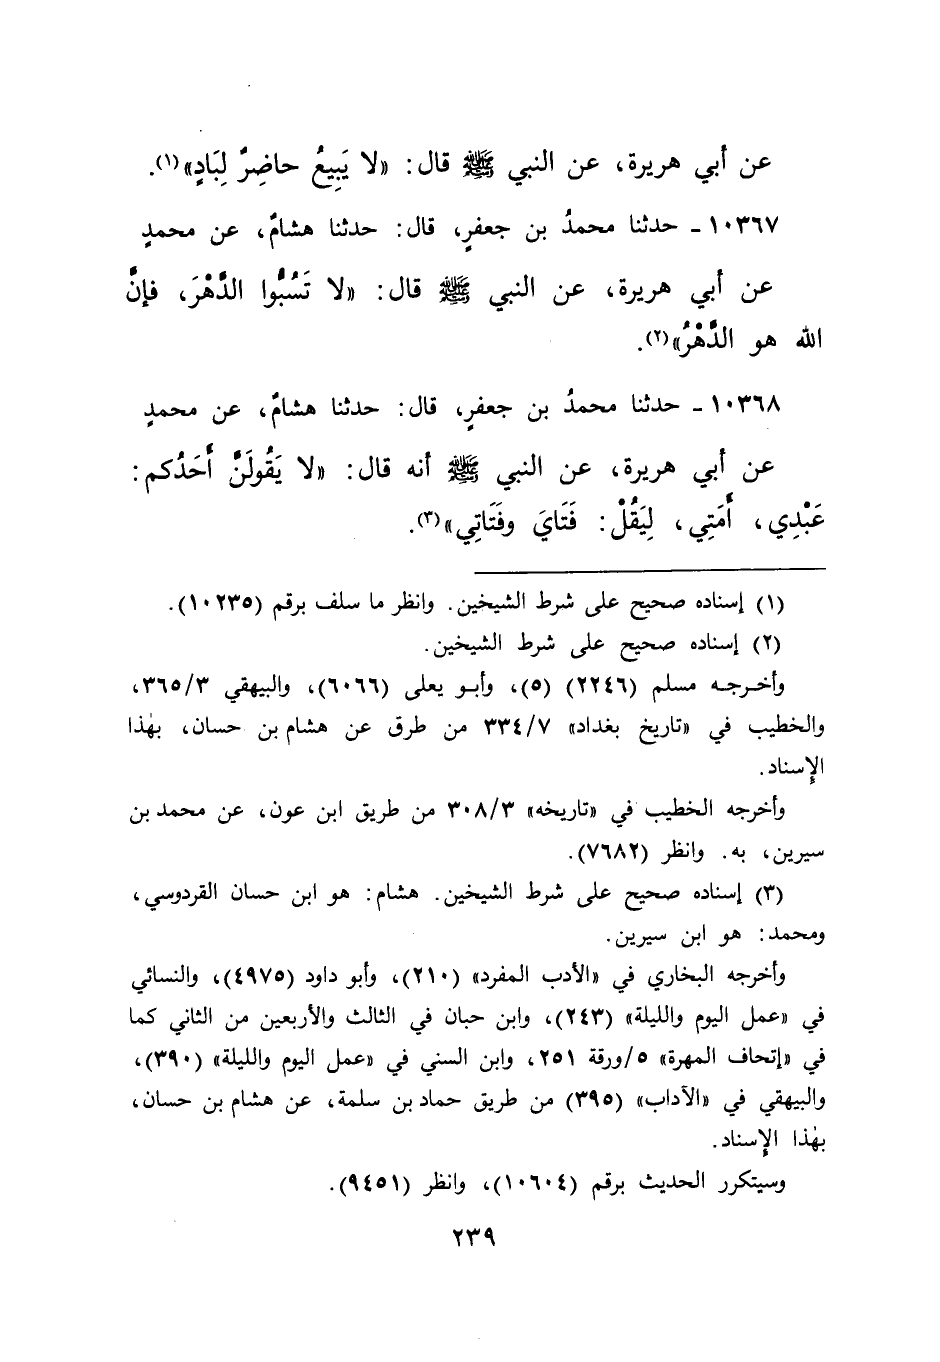 عن أبي هريرة، عن النبي ﷺ قال: «لا يَبِيعُ حاضِرٌ لِبَادٍ»(١).
١٠٣٦٧ - حدثنا محمدُ بن جعفرٍ، قال: حدثنا هشامٌ، عن محمدٍ
عن أبي هريرة، عن النبي ﷺ قال: «لا تَسُبُّوا الدَّهْرَ، فإنَّ
الله هو الدَّهْرُ»(٢).
١٠٣٦٨ - حدثنا محمدُ بن جعفرٍ، قال: حدثنا هشامٌ، عن محمدٍ
عن أبي هريرة، عن النبي ﷺ أنه قال: «لا يَقُولَنَّ أَحَدُكم:
عَبْدِي، أَمَتِي، لِيَقُلْ: فَتَايَ وفَتَاتِي»(٣).
(١) إسناده صحيح على شرط الشيخين. وانظر ما سلف برقم (١٠٢٣٥).
(٢) إسناده صحيح على شرط الشيخين.
وأخرجه مسلم (٢٢٤٦) (٥)، وأبو يعلى (٦٠٦٦)، والبيهقي ٣٦٥/٣،
والخطيب في «تاريخ بغداد» ٣٣٤/٧ من طرق عن هشام بن حسان، بهٰذا
الإسناد.
وأخرجه الخطيب في «تاريخه» ٣٠٨/٣ من طريق ابن عون، عن محمد بن
سيرين، به. وانظر (٧٦٨٢).
(٣) إسناده صحيح على شرط الشيخين. هشام: هو ابن حسان القردوسي،
ومحمد: هو ابن سيرين.
وأخرجه البخاري في «الأدب المفرد» (٢١٠)، وأبو داود (٤٩٧٥)، والنسائي
في «عمل اليوم والليلة» (٢٤٣)، وابن حبان في الثالث والأربعين من الثاني كما
في «إتحاف المهرة» ٥/ورقة ٢٥١، وابن السني في «عمل اليوم والليلة» (٣٩٠)،
والبيهقي في «الآداب» (٣٩٥) من طريق حماد بن سلمة، عن هشام بن حسان،
بهٰذا الإسناد.
وسيتكرر الحديث برقم (١٠٦٠٤)، وانظر (٩٤٥١).
٢٣٩